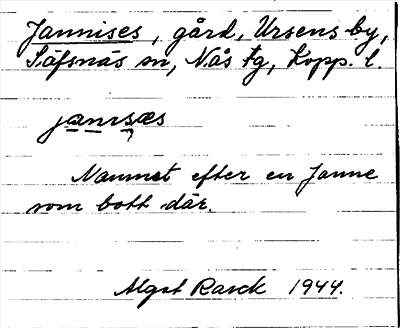 Jannises, gård, Ursens by,
Säfsnäs sn, Nås tg, Kopp. l.
janisæs
Namnet efter en Janne
som bott där.
Algot Rasck 1944.